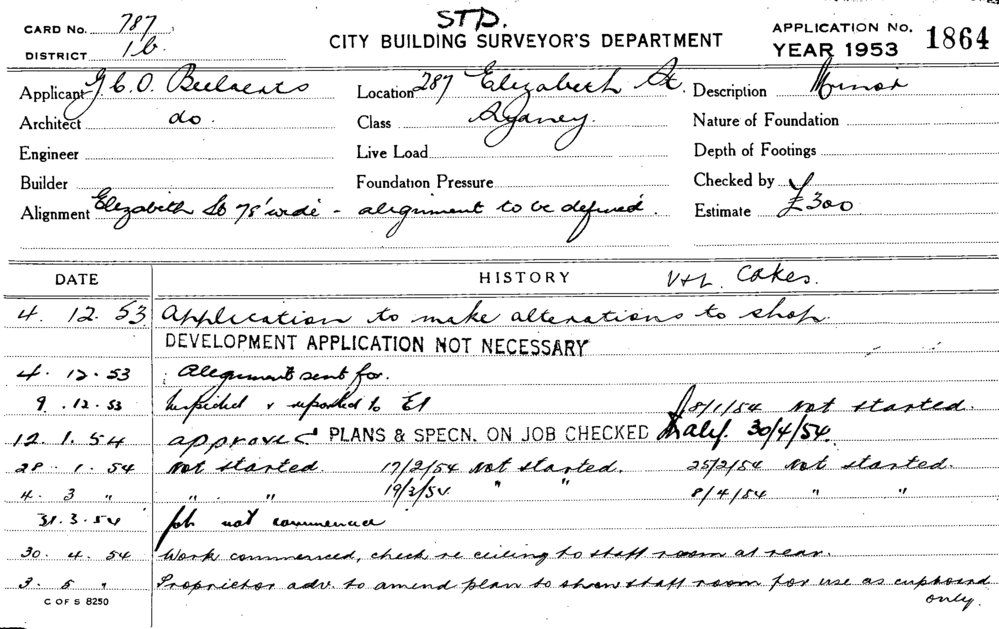 STD.
CARD NO. 787
CITY BUILDING SURVEYOR'S DEPARTMENT
APPLICATION NO. 1864
DISTRICT 1b.
YEAR 1953
Applicant G.C.O. Location 287 Elizabeth St. Description Minor
Architect do. Class Sydney. Nature of Foundation
Engineer Live Load Depth of Footings
Builder Foundation Pressure Checked by
Alignment Elizabeth St 78' wide - alignment to be defined. Estimate £300
DATE HISTORY Cakes.
4. 12. 53 Application to make alterations to shop.
DEVELOPMENT APPLICATION NOT NECESSARY
4. 12. 53 Alignment sent for.
9. 12. 53 Inspected & reported to 8/1/54 Not started.
12. 1. 54 approved PLANS & SPECN. ON JOB CHECKED 30/4/54.
28. 1. 54 Not started. 17/2/54 Not started. 25/2/54 Not started.
4. 3 " " " " " 8/4/54 " "
31.3.54 Job not commenced
30. 4. 54 Work commenced, check re ceiling to staff room at rear.
3. 5 " Proprietor adv. to amend plan to show staff room for use as cupboard
only.
C OF S 8250